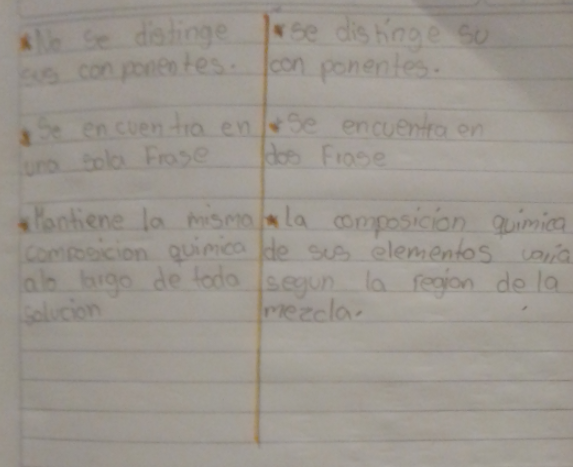 *No se distinge
sus conponentes.
*Se encuentra en
una sola Frase
*Mantiene la misma
composicion quimica
alo largo de toda
solucion
*se distinge su
con ponentes.
*Se encuentra en
dos Frase
*la composicion quimica
de sus elementos varia
segun la region de la
mezcla.